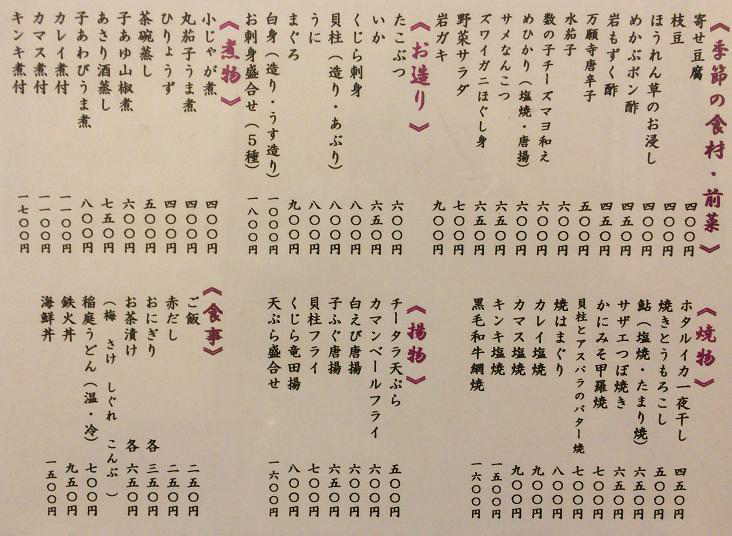 《季節の食材・前菜》
寄せ豆腐 四〇〇円
枝豆 四〇〇円
ほうれん草のお浸し 四〇〇円
めかぶポン酢 四五〇円
岩もずく酢 四五〇円
万願寺唐辛子 五〇〇円
水茄子 六〇〇円
数の子チーズマヨ和え 六〇〇円
めひかり（塩焼・唐揚） 六五〇円
サメなんこつ 六五〇円
ズワイガニほぐし身 六五〇円
野菜サラダ 七〇〇円
岩ガキ 九〇〇円
《お造り》
たこぶつ 六〇〇円
いか 六五〇円
くじら刺身 八〇〇円
貝柱（造り・あぶり） 八〇〇円
うに 八〇〇円
まぐろ 九〇〇円
白身（造り・うす造り） 一〇〇〇円
お刺身盛合せ（５種） 一八〇〇円
《煮物》
小じゃが煮 四〇〇円
丸茄子うま煮 四〇〇円
ひりょうず 四〇〇円
茶碗蒸し 五〇〇円
子あゆ山椒煮 六〇〇円
あさり酒蒸し 七五〇円
子あわびうま煮 八〇〇円
カレイ煮付 一一〇〇円
カマス煮付 一一〇〇円
キンキ煮付 一七〇〇円
《焼物》
ホタルイカ一夜干し 四五〇円
焼きとうもろこし 五〇〇円
鮎（塩焼・たまり焼） 六五〇円
サザエつぼ焼き 六五〇円
かにみそ甲羅焼 七〇〇円
貝柱とアスパラのバター焼 七〇〇円
焼はまぐり 八〇〇円
カレイ塩焼 九〇〇円
カマス塩焼 九〇〇円
キンキ塩焼 一五〇〇円
黒毛和牛網焼 一六〇〇円
《揚物》
チータラ天ぷら 五〇〇円
カマンベールフライ 六〇〇円
白えび唐揚 六〇〇円
子ふぐ唐揚 六五〇円
貝柱フライ 七〇〇円
くじら竜田揚 八〇〇円
天ぷら盛合せ 一六〇〇円
《食事》
ご飯 二五〇円
赤だし 二五〇円
おにぎり 各 三五〇円
お茶漬け 各 六五〇円
（梅 さけ しぐれ こんぶ）
稲庭うどん（温・冷） 七〇〇円
鉄火丼 九五〇円
海鮮丼 一五〇〇円